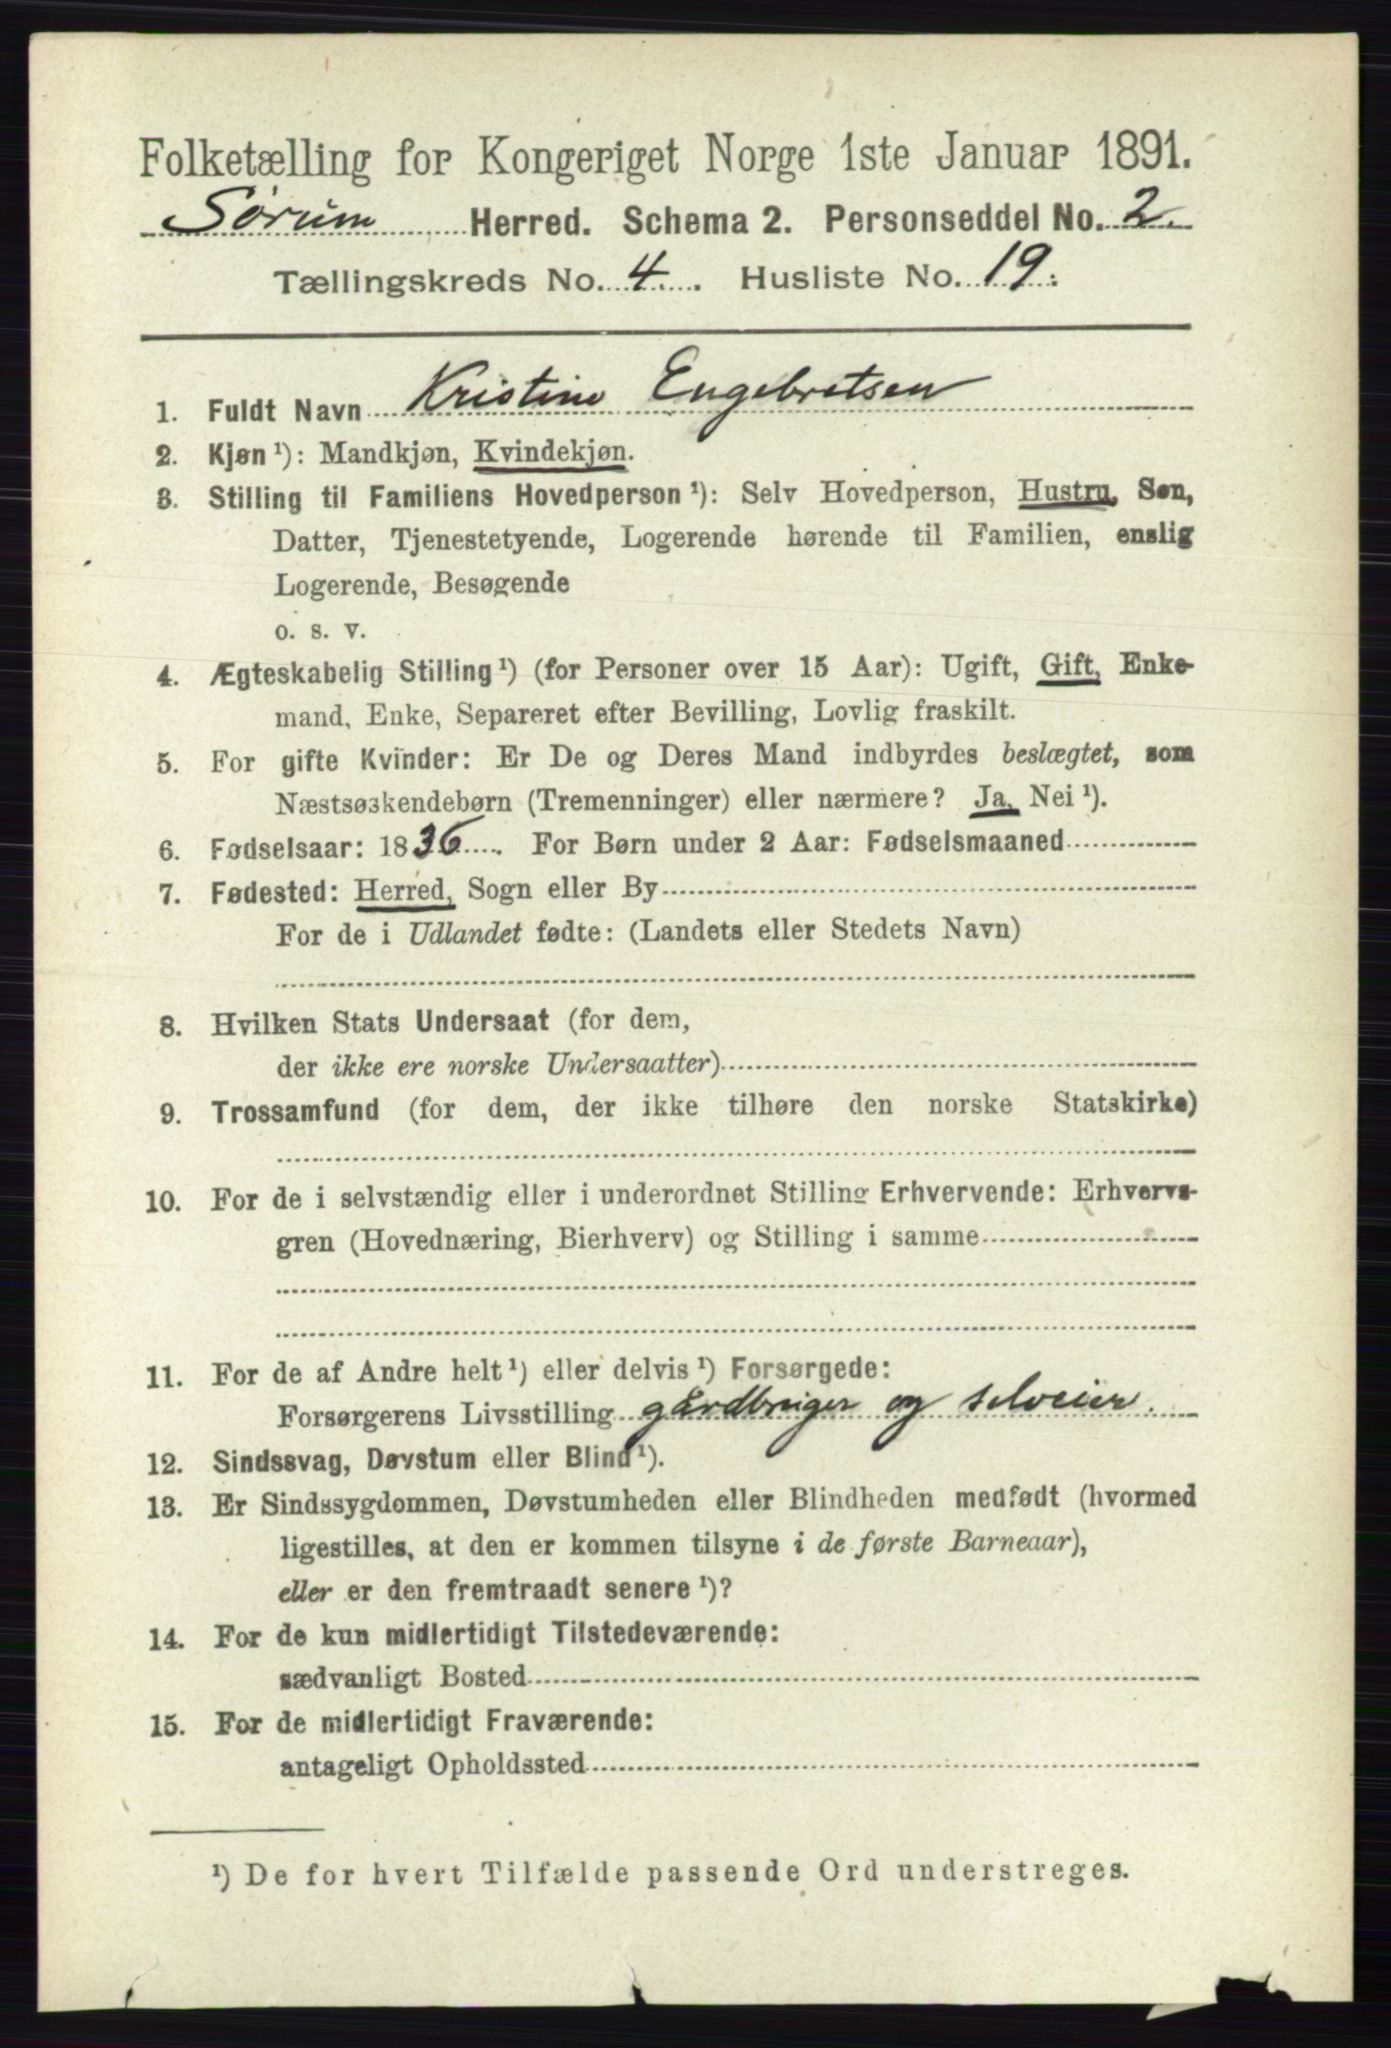 Folketælling for Kongeriget Norge 1ste Januar 1891.
Sørum Herred. Schema 2. Personseddel No. 2.
Tællingskreds No. 4. Husliste No. 19.
1. Fuldt Navn Kristine Engebretsen
2. Kjøn ¹): Mandkjøn, Kvindekjøn.
3. Stilling til Familiens Hovedperson ¹): Selv Hovedperson, Hustru, Søn,
Datter, Tjenestetyende, Logerende hørende til Familien, enslig
Logerende, Besøgende
o. s. v.
4. Ægteskabelig Stilling ¹) (for Personer over 15 Aar): Ugift, Gift, Enke-
mand, Enke, Separeret efter Bevilling, Lovlig fraskilt.
5. For gifte Kvinder: Er De og Deres Mand indbyrdes beslægtet, som
Næstsøskendebørn (Tremenninger) eller nærmere? Ja, Nei ¹).
6. Fødselsaar: 1836. For Børn under 2 Aar: Fødselsmaaned
7. Fødested: Herred, Sogn eller By
For de i Udlandet fødte: (Landets eller Stedets Navn)
8. Hvilken Stats Undersaat (for dem,
der ikke ere norske Undersaatter)
9. Trossamfund (for dem, der ikke tilhøre den norske Statskirke)
10. For de i selvstændig eller i underordnet Stilling Erhvervende: Erhvervs-
gren (Hovednæring, Bierhverv) og Stilling i samme
11. For de af Andre helt ¹) eller delvis ¹) Forsørgede:
Forsørgerens Livsstilling gårdbruger og selveier.
12. Sindssvag, Døvstum eller Blind ¹).
13. Er Sindssygdommen, Døvstumheden eller Blindheden medfødt (hvormed
ligestilles, at den er kommen tilsyne i de første Barneaar),
eller er den fremtraadt senere ¹)?
14. For de kun midlertidigt Tilstedeværende:
sædvanligt Bosted
15. For de midlertidigt Fraværende:
antageligt Opholdssted
¹) De for hvert Tilfælde passende Ord understreges.